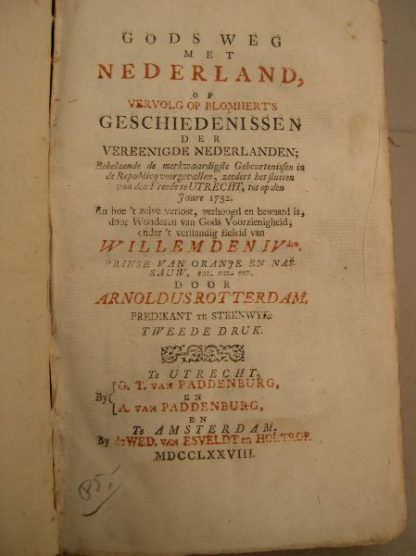 GODS WEG
MET
NEDERLAND,
OP
VERVOLG OP BLOMHERT'S
GESCHIEDENISSEN
DER
VEREENIGDE NEDERLANDEN;
Behelzende de merkwaardigste Gebeurtenissen in
de Republicq voorgevallen, zedert het sluiten
van den Vreede te UTRECHT, tot op den
Jaare 1752.
En hoe 't zelve verlost, verhoogd en bewaard is,
door Wonderen van Gods Voorzienigheid,
onder 't verstandig Beleid van
WILLEM DEN IVden.
PRINSE VAN ORANJE EN NAS-
SAUW, enz. enz. enz.
DOOR
ARNOLDUS ROTTERDAM,
PREDIKANT TE STEENWYK.
TWEEDE DRUK.
Te UTRECHT,
By G. T. VAN PADDENBURG,
EN
A. VAN PADDENBURG,
EN
Te AMSTERDAM,
By de WED. VAN ESVELDT en HOLTROP.
MDCCLXXVIII.
85.